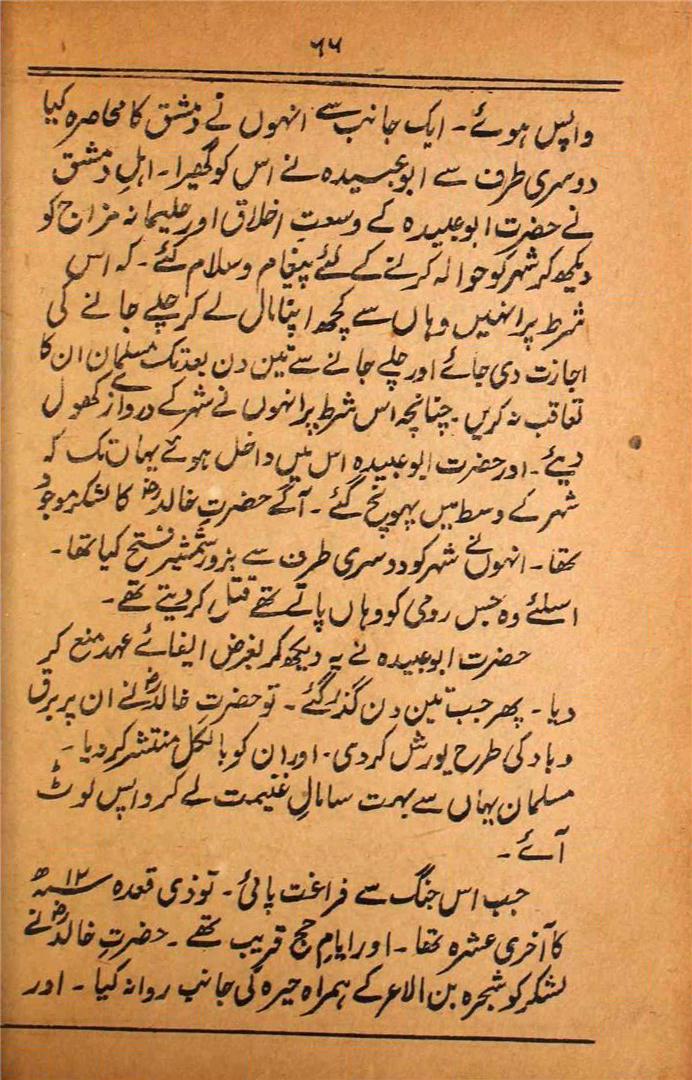 ۶۶
واپس ہوئے ۔ ایک جانب سے انہوں نے دمشق کا محاصرہ کیا
دوسری طرف سے ابو عبیدہ نے اس کو گھیرا ۔ اہلِ دمشق
نے حضرت ابو عبیدہ کے وسعتِ اخلاق اور حلیمانہ مزاج کو
دیکھ کر شہر کو حوالہ کرنے کے لئے پیغام و سلام کئے ۔ کہ اس
شرط پر انہیں وہاں سے کچھ اپنا مال لے کر چلے جانے کی
اجازت دی جائے اور چلے جانے سے تین دن بعد تک مسلمان ان کا
تعاقب نہ کریں ۔ چنانچہ اس شرط پر انہوں نے شہر کے دروازے کھول
دیئے ۔ اور حضرت ابو عبیدہ اس میں داخل ہوئے یہاں تک کہ
شہر کے وسط میں پہونچ گئے ۔ آگے حضرتِ خالدؓ کا لشکر موجود
تھا ۔ انہوں نے شہر کو دوسری طرف سے بزورِ شمشیر فتح کیا تھا ۔
اسلئے وہ جس رومی کو وہاں پاتے تھے قتل کر دیتے تھے ۔
حضرت ابو عبیدہ نے یہ دیکھ کر بغرض ایفائے عہد منع کر
دیا ۔ پھر جب تین دن گذر گئے ۔ تو حضرتِ خالدؓ نے ان پر برق
و باد کی طرح یورش کر دی ۔ اور ان کو بالکل منتشر کر دیا ۔
مسلمان یہاں سے بہت سا مالِ غنیمت لے کر واپس لوٹ
آئے ۔
جب اس جنگ سے فراغت پائی ۔ تو ذی قعدہ ۱۲ سنہ ھ
کا آخری عشرہ تھا ۔ اور ایامِ حج قریب تھے ۔ حضرتِ خالدؓ نے
لشکر کو شجرہ بن الاعر کے ہمراہ حیرہ کی جانب روانہ کیا ۔ اور